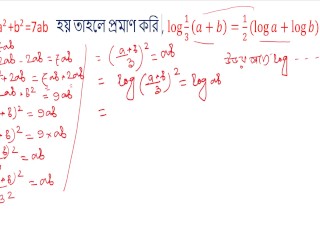 a²+b²=7ab হয় তাহলে প্রমাণ করি , log 1/3 (a + b) = 1/2 (log a + log b)
7ab
2ab - 2ab = 7ab
+ 2ab = 7ab + 2ab
2ab + b² = 9ab
+ b)² = 9ab
+ b)² = 9 × ab
b)² = ab
+ b)² = ab
3²
= ((a+b)/3)² = ab
= log ((a+b)/3)² = log ab
=
log - - - -